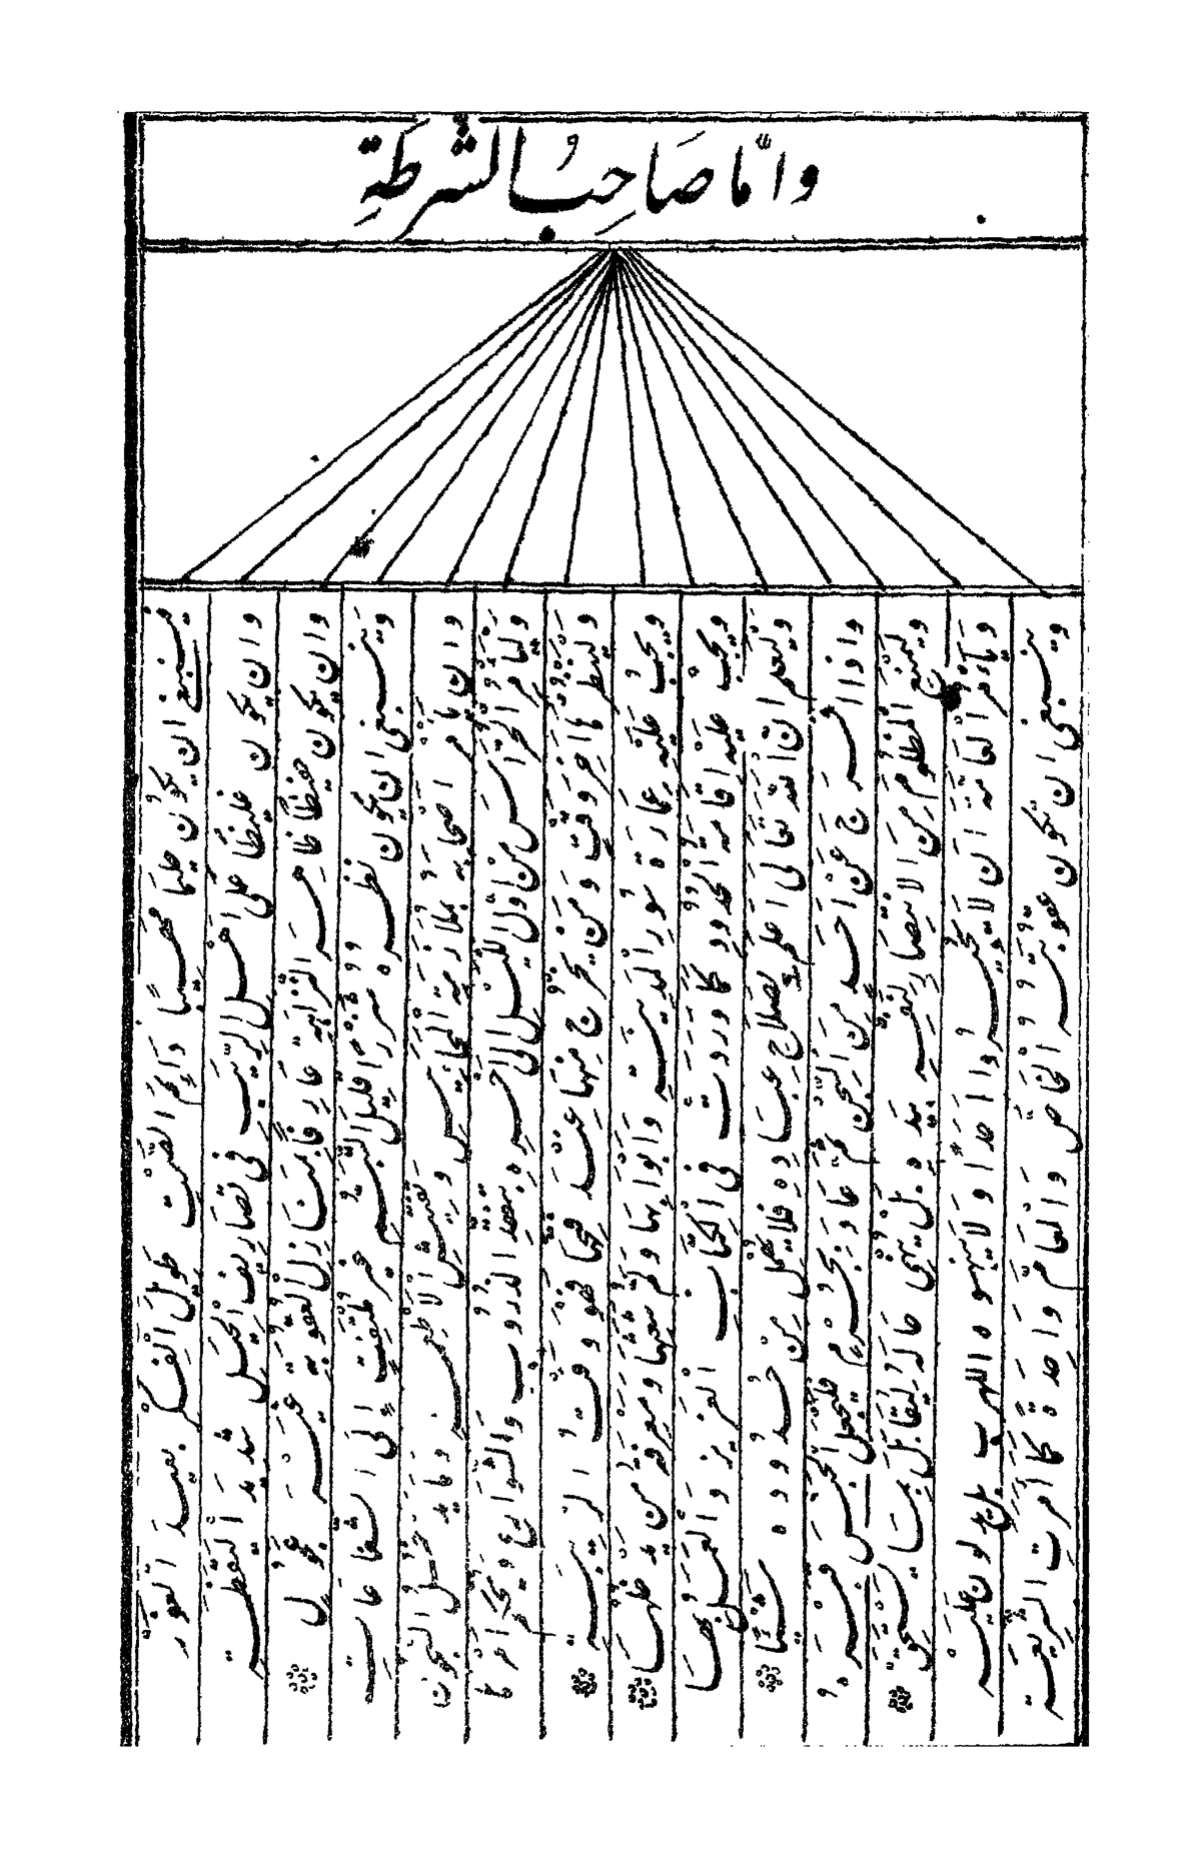 وَاَمَّا صَاحِبُ الشرطَةِ
فينبغى ان يكون حليما مهيبًا دَائِمَ الصَّمْتِ طويلَ الفِكْر بعيدَ الغور
وان يكون غليظًا عَلى اهْلِ الرِّيَبِ فى تصاريف الحيَلِ شديدَ اليقظةِ
وان يكون حفيظًا ظاهرَ النزاهةِ عارفًا بمنازل العقوبةِ غيرَ عَجُولٍ
وينبغى ان يكون نظره شزرًا قليلَ التبسُّمِ غير ملتفتٍ الى الشفاعاتِ
وان يأمر اصحابه بملازمة المحابيس وتفتيش الاطعمة وما يدخل السجون
وليأمر الحراس من اول الليل الى اخره بتفقد الدروب والشوارع
ولينظر ما اخر وقت ومن يخرج منها عند فهو وقت الريبةِ
ويجبُ عليه عمارة سور المدينةِ وابوابها ومعرفة من يدخلها
ويجبُ عليه اقامة الحدود كما وردت فى الكتاب العزيز والعمل بها
وليعلم ان اللّه تعالى اعلم بصلاح عباده فلا يهمل من حدوده شَيْئًا
واذا افرج عَنْ اَحَدٍ مِنَ السِّجن ثم عاد بجُرْمٍ فليجعل الحبس قبره
وليمنع المظلوم من الانتصار لنفسه بيده بل ينهى حاله ليقابل بما يستحق
ويأمر العامة ان لا يجيروا احدًا ولا ينبهوه للهرب بل يدلون عليه
وينبغى ان تكون عقوبته فى الخاصِّ والعامِّ واحدةً كما اَمرت الشريعة